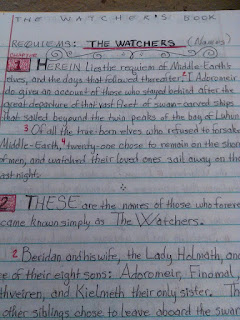 THE WATCHER'S BOOK
REQUIEMS: THE WATCHERS (Names)
CHAPTER
1 HEREIN Lies the requiem of Middle-Earth's
elves, and the days that followed thereafter. 2 I Adoromeir
do give an account of those who stayed behind after the
great departure of that vast fleet of swan-carved ships
that sailed beyond the twin peaks of the bay of Luhun.
3 Of all the true-born elves who refused to forsake
Middle-Earth, 4 twenty-one chose to remain on the shores
of men, and watched their loved ones sail away on that
last night.
2 THESE are the names of those who forever
came known simply as The Watchers.
2 Beridan and his wife, the Lady Holmath, and
of their eight sons: Adoromeir, Finamal,
thveiren, and Kielmeth their only sister. Th
other siblings chose to leave aboard the swan